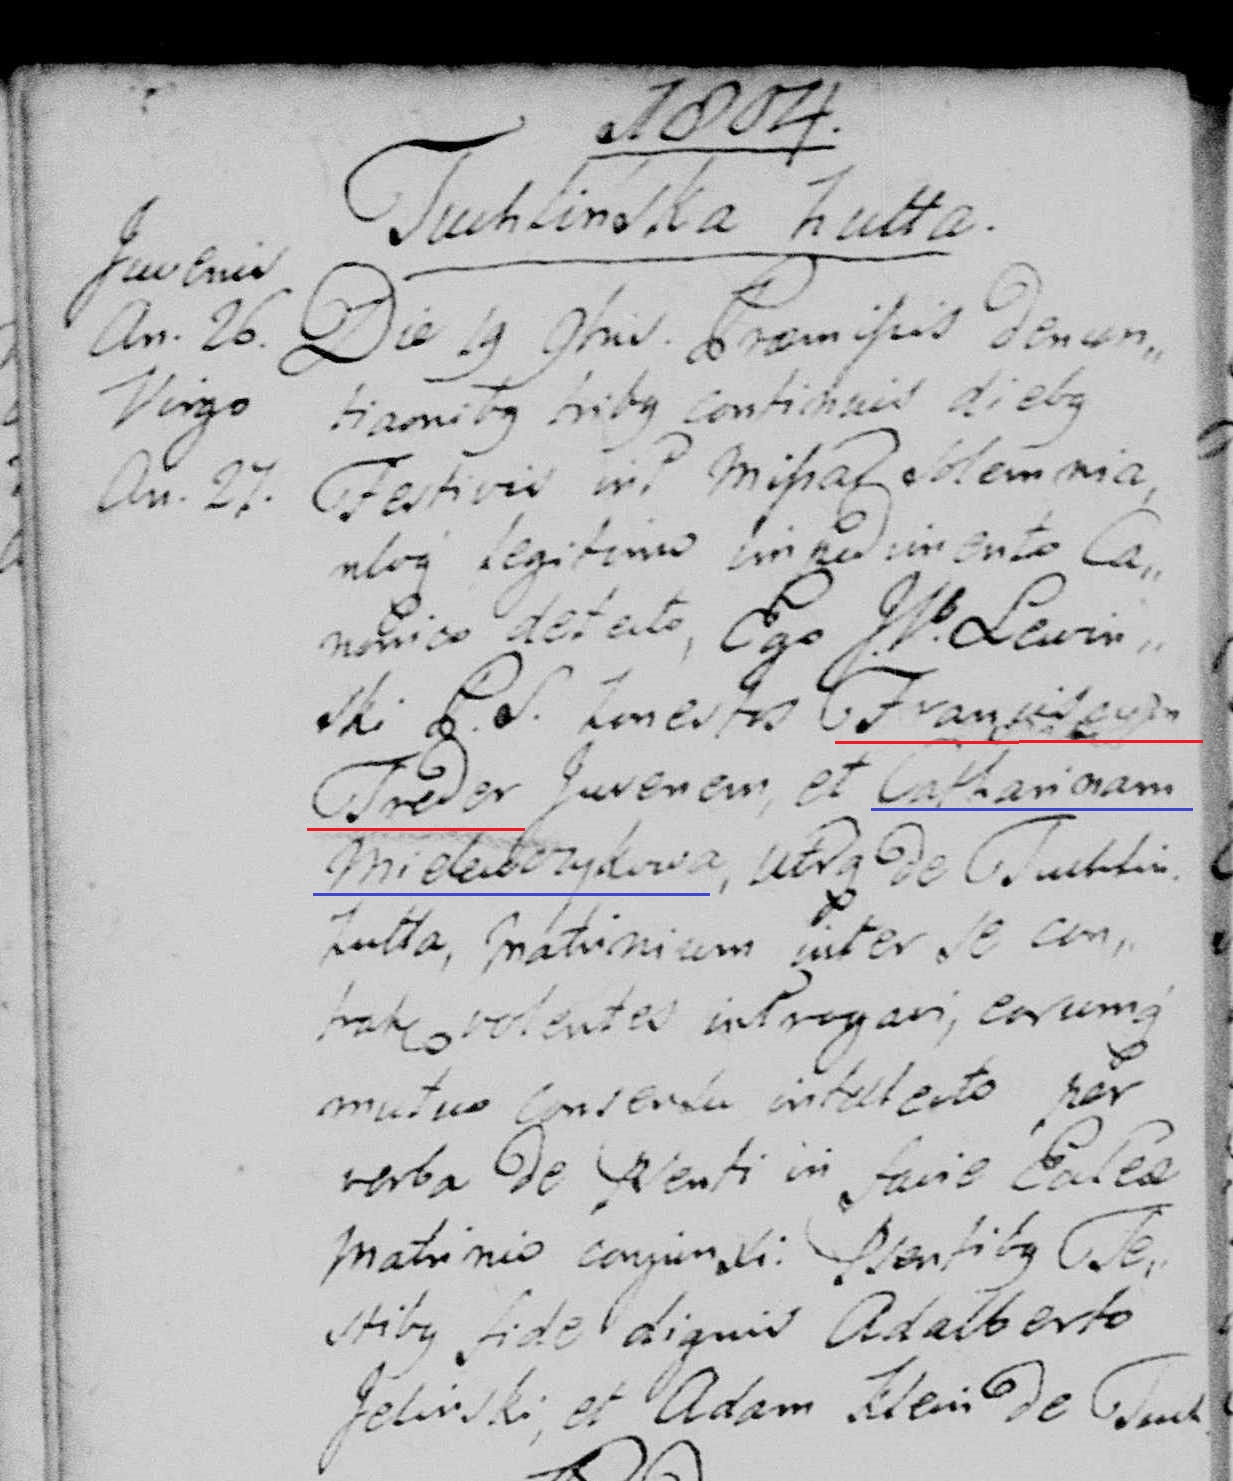 1804.
Tuchlinska hutta.
Juvenis
An. 26.
Virgo
An. 27.
Die 19 9bris. Præmissis denun„
tiaonibq tribq continuis diebq
Festivis int Missaꝝ Solemnia,
nloq legitimo impedimento Ca„
nonico detecto, Ego J.W. Lewin„
ski P.S. honestos Franciscum
Treder Juvenem, et Catharinam
utrq de Tuchlin.
hutta, Matrimonium inter se con„
trahe volentes introgavi, eorumq
mutuo consensu intellecto per
verba de psenti in facie Ecclæ
Matrimio conjunxi: Psentibq Te„
stibq fide dignis Adalberto
Jelinski, et Adam Klein de Tuch